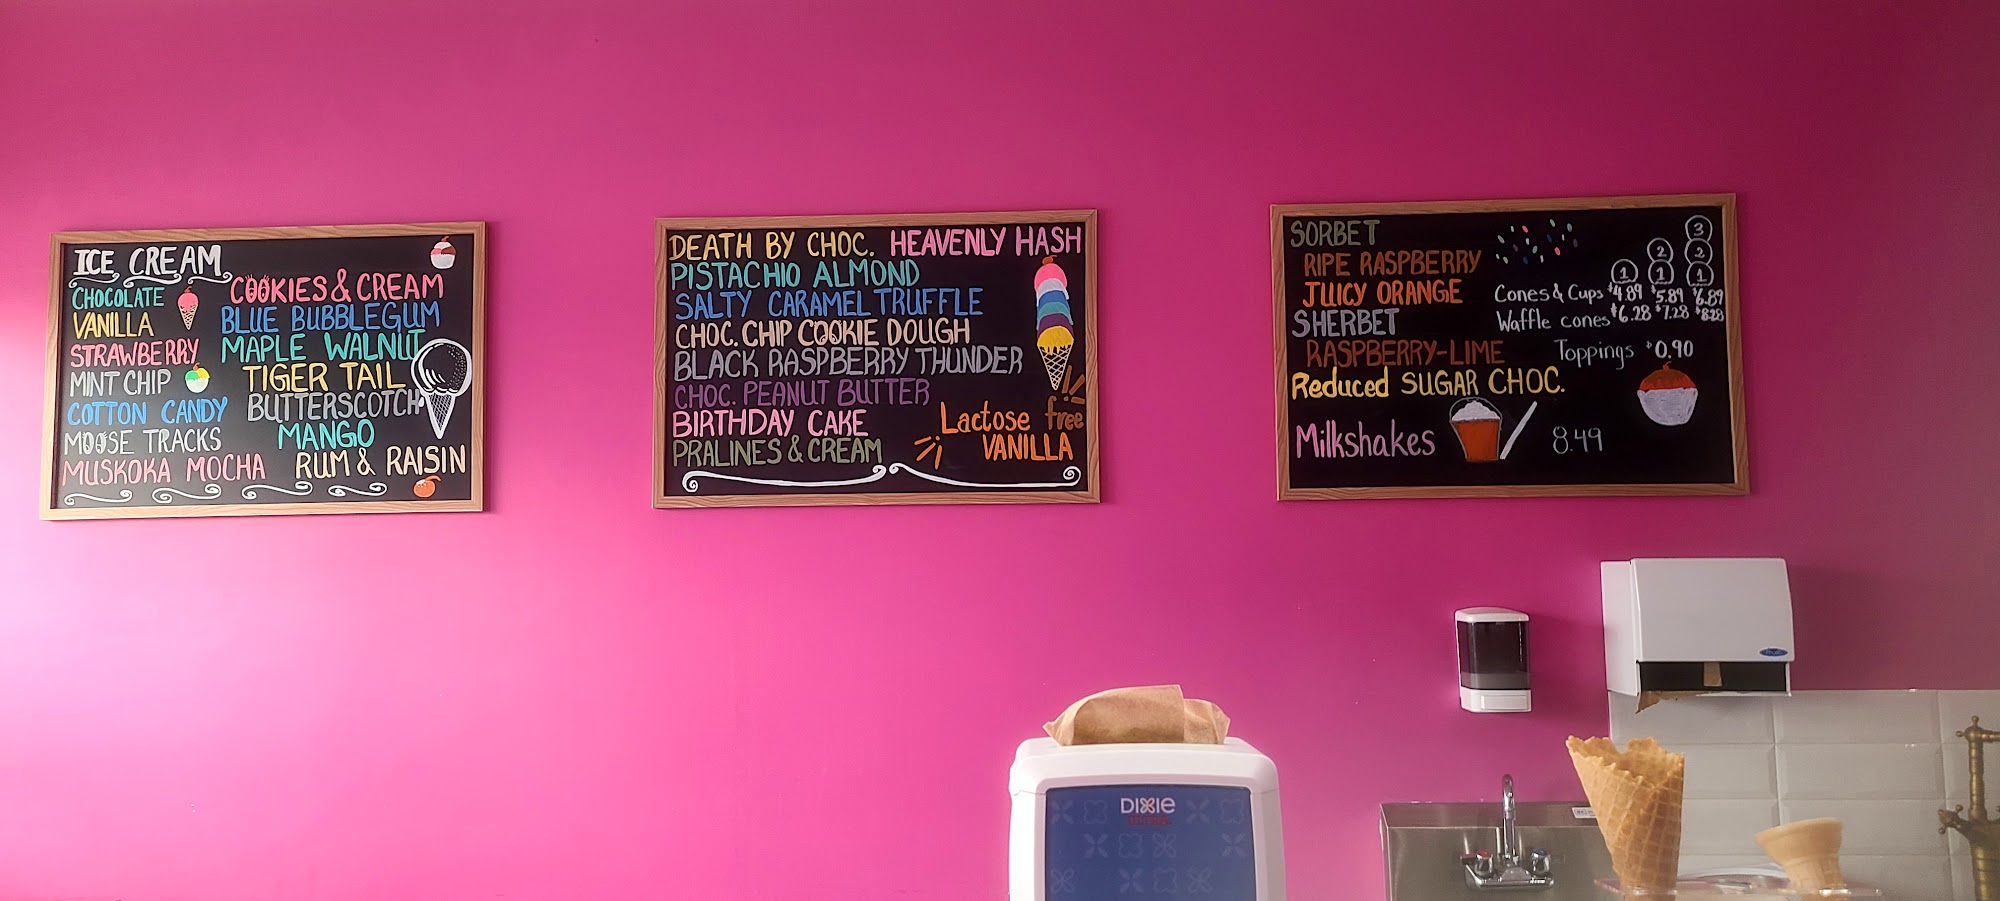 ICE CREAM
CHOCOLATE
VANILLA
STRAWBERRY
MINT CHIP
COTTON CANDY
MOOSE TRACKS
MUSKOKA MOCHA
COOKIES & CREAM
BLUE BUBBLEGUM
MAPLE WALNUT
TIGER TAIL
BUTTERSCOTCH
MANGO
RUM & RAISIN
DEATH BY CHOC. HEAVENLY HASH
PISTACHIO ALMOND
SALTY CARAMEL TRUFFLE
CHOC. CHIP COOKIE DOUGH
BLACK RASPBERRY THUNDER
CHOC. PEANUT BUTTER
BIRTHDAY CAKE
PRALINES & CREAM
Lactose free
VANILLA
SORBET
RIPE RASPBERRY
JUICY ORANGE
SHERBET
RASPBERRY-LIME
Reduced SUGAR CHOC.
Milkshakes 8.49
3
2 2
1 1 1
Cones & Cups $4.89 $5.89 $6.89
Waffle cones $6.28 $7.28 $8.28
Toppings $0.90
DIXIE